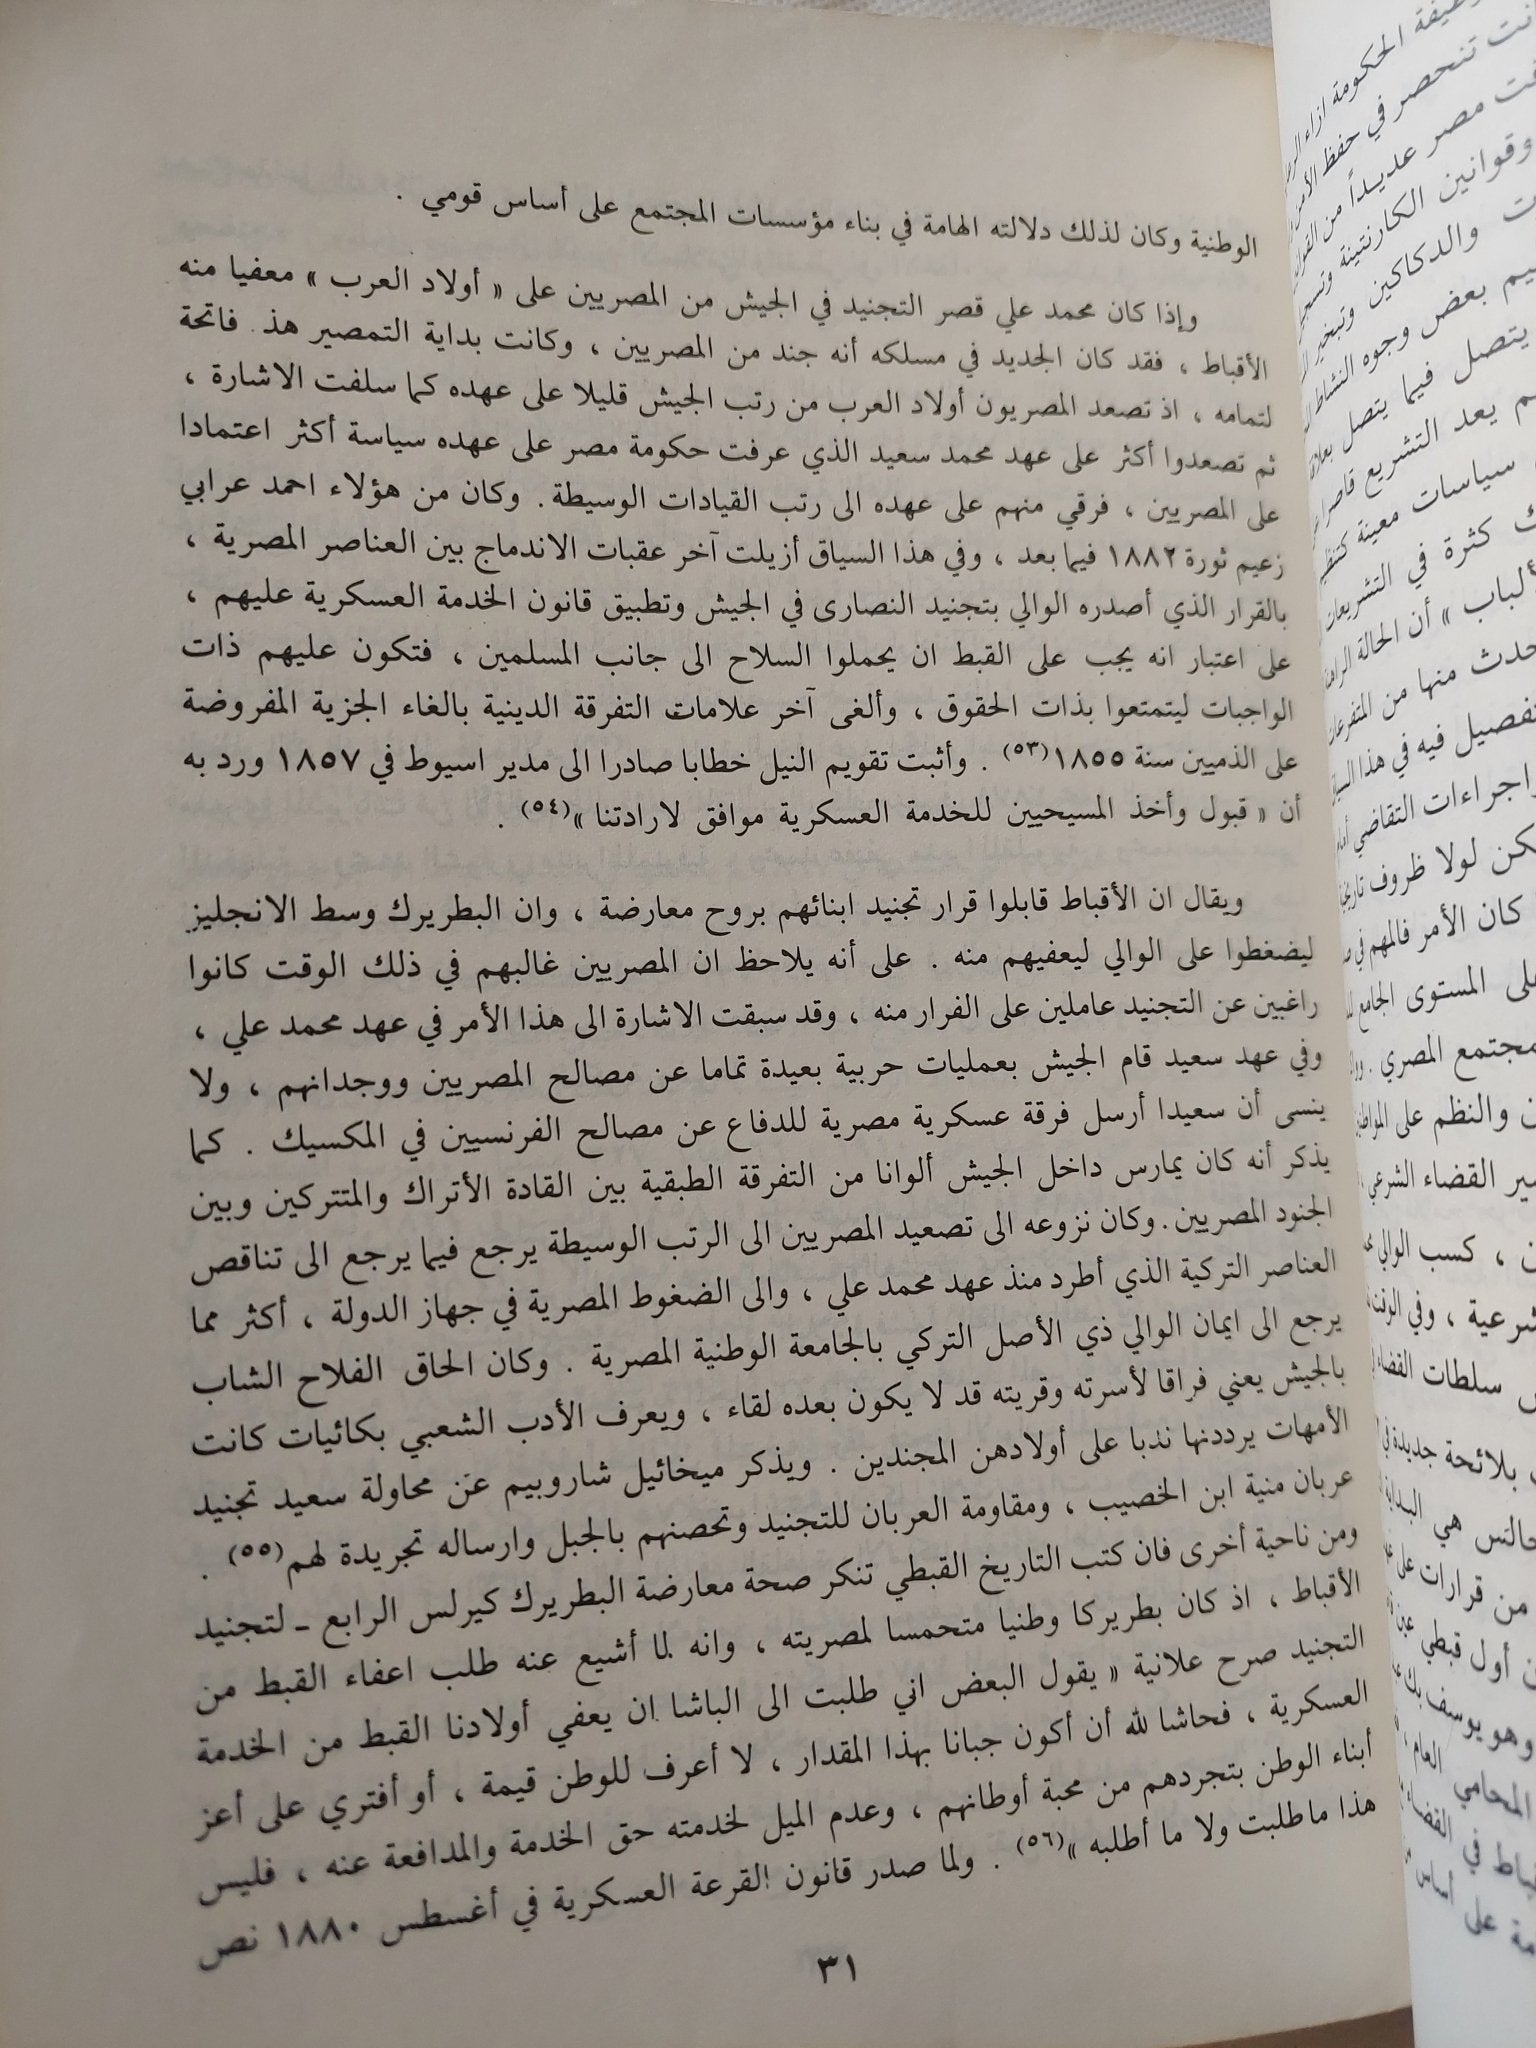 الوطنية وكان لذلك دلالته الهامة في بناء مؤسسات المجتمع على أساس قومي .
وإذا كان محمد علي قصر التجنيد في الجيش من المصريين على « أولاد العرب » معفيا منه
الأقباط ، فقد كان الجديد في مسلكه أنه جند من المصريين ، وكانت بداية التمصير هذ فاتحة
لتمامه ، اذ تصعد المصريون أولاد العرب من رتب الجيش قليلا على عهده كما سلفت الاشارة ،
ثم تصعدوا أكثر على عهد محمد سعيد الذي عرفت حكومة مصر على عهده سياسة أكثر اعتمادا
على المصريين ، فرقي منهم على عهده الى رتب القيادات الوسيطة . وكان من هؤلاء احمد عرابي
زعيم ثورة ١٨٨٢ فيما بعد ، وفي هذا السياق أزيلت آخر عقبات الاندماج بين العناصر المصرية ،
بالقرار الذي أصدره الوالي بتجنيد النصارى في الجيش وتطبيق قانون الخدمة العسكرية عليهم ،
على اعتبار انه يجب على القبط ان يحملوا السلاح الى جانب المسلمين ، فتكون عليهم ذات
الواجبات ليتمتعوا بذات الحقوق ، وألغى آخر علامات التفرقة الدينية بالغاء الجزية المفروضة
على الذميين سنة ١٨٥٥(٥٣) . وأثبت تقويم النيل خطابا صادرا الى مدير اسيوط في ١٨٥٧ ورد به
أن « قبول وأخذ المسيحيين للخدمة العسكرية موافق لارادتنا »(٥٤) .
ويقال ان الأقباط قابلوا قرار تجنيد ابنائهم بروح معارضة ، وان البطريرك وسط الانجليز
ليضغطوا على الوالي ليعفيهم منه . على أنه يلاحظ ان المصريين غالبهم في ذلك الوقت كانوا
راغبين عن التجنيد عاملين على الفرار منه ، وقد سبقت الاشارة الى هذا الأمر في عهد محمد علي ،
وفي عهد سعيد قام الجيش بعمليات حربية بعيدة تماما عن مصالح المصريين ووجدانهم ، ولا
ينسى أن سعيدا أرسل فرقة عسكرية مصرية للدفاع عن مصالح الفرنسيين في المكسيك . كما
يذكر أنه كان يمارس داخل الجيش ألوانا من التفرقة الطبقية بين القادة الأتراك والمتتركين وبين
الجنود المصريين . وكان نزوعه الى تصعيد المصريين الى الرتب الوسيطة يرجع فيما يرجع الى تناقص
العناصر التركية الذي أطرد منذ عهد محمد علي ، والى الضغوط المصرية في جهاز الدولة ، أكثر مما
يرجع الى ايمان الوالي ذي الأصل التركي بالجامعة الوطنية المصرية . وكان الحاق الفلاح الشاب
بالجيش يعني فراقا لأسرته وقريته قد لا يكون بعده لقاء ، ويعرف الأدب الشعبي بكائيات كانت
الأمهات يرددنها ندبا على أولادهن المجندين . ويذكر ميخائيل شاروبيم عن محاولة سعيد تجنيد
عربان منية ابن الخصيب ، ومقاومة العربان للتجنيد وتحصنهم بالجبل وارساله تجريدة لهم(٥٥) .
ومن ناحية أخرى فان كتب التاريخ القبطي تنكر صحة معارضة البطريرك كيرلس الرابع ـ لتجنيد
الأقباط ، اذ كان بطريركا وطنيا متحمسا لمصريته ، وانه لما أشيع عنه طلب اعفاء القبط من
التجنيد صرح علانية « يقول البعض اني طلبت الى الباشا ان يعفي أولادنا القبط من الخدمة
العسكرية ، فحاشا لله أن أكون جبانا بهذا المقدار ، لا أعرف للوطن قيمة ، أو أفتري على أعز
أبناء الوطن بتجردهم من محبة أوطانهم ، وعدم الميل لخدمته حق الخدمة والمدافعة عنه ، فليس
هذا ماطلبت ولا ما أطلبه »(٥٦) . ولما صدر قانون القرعة العسكرية في أغسطس ١٨٨٠ نص
٣١
الحكومة ازاء
تنحصر في حفظ الأمن
مصر عديداً من
وقوانين الكارنتينة
والدكاكين وتبخير
بعض وجوه النشاط
يتصل فيما يتصل
يعد التشريع قاصرا
سياسات معينة
كثرة في التشريعات
أن الحالة
منها من المتفرعات
فيه في هذا
اجراءات التقاضي
لولا ظروف
كان الأمر فالمهم في
المستوى الجامع
المصري .
والنظم على
القضاء الشرعي
، كسب الوالي
، وفي الوقت
سلطات
بلائحة جديدة
هي
من قرارات على
أول قبطي
وهو يوسف بك
المحامي العام
في
على أساس